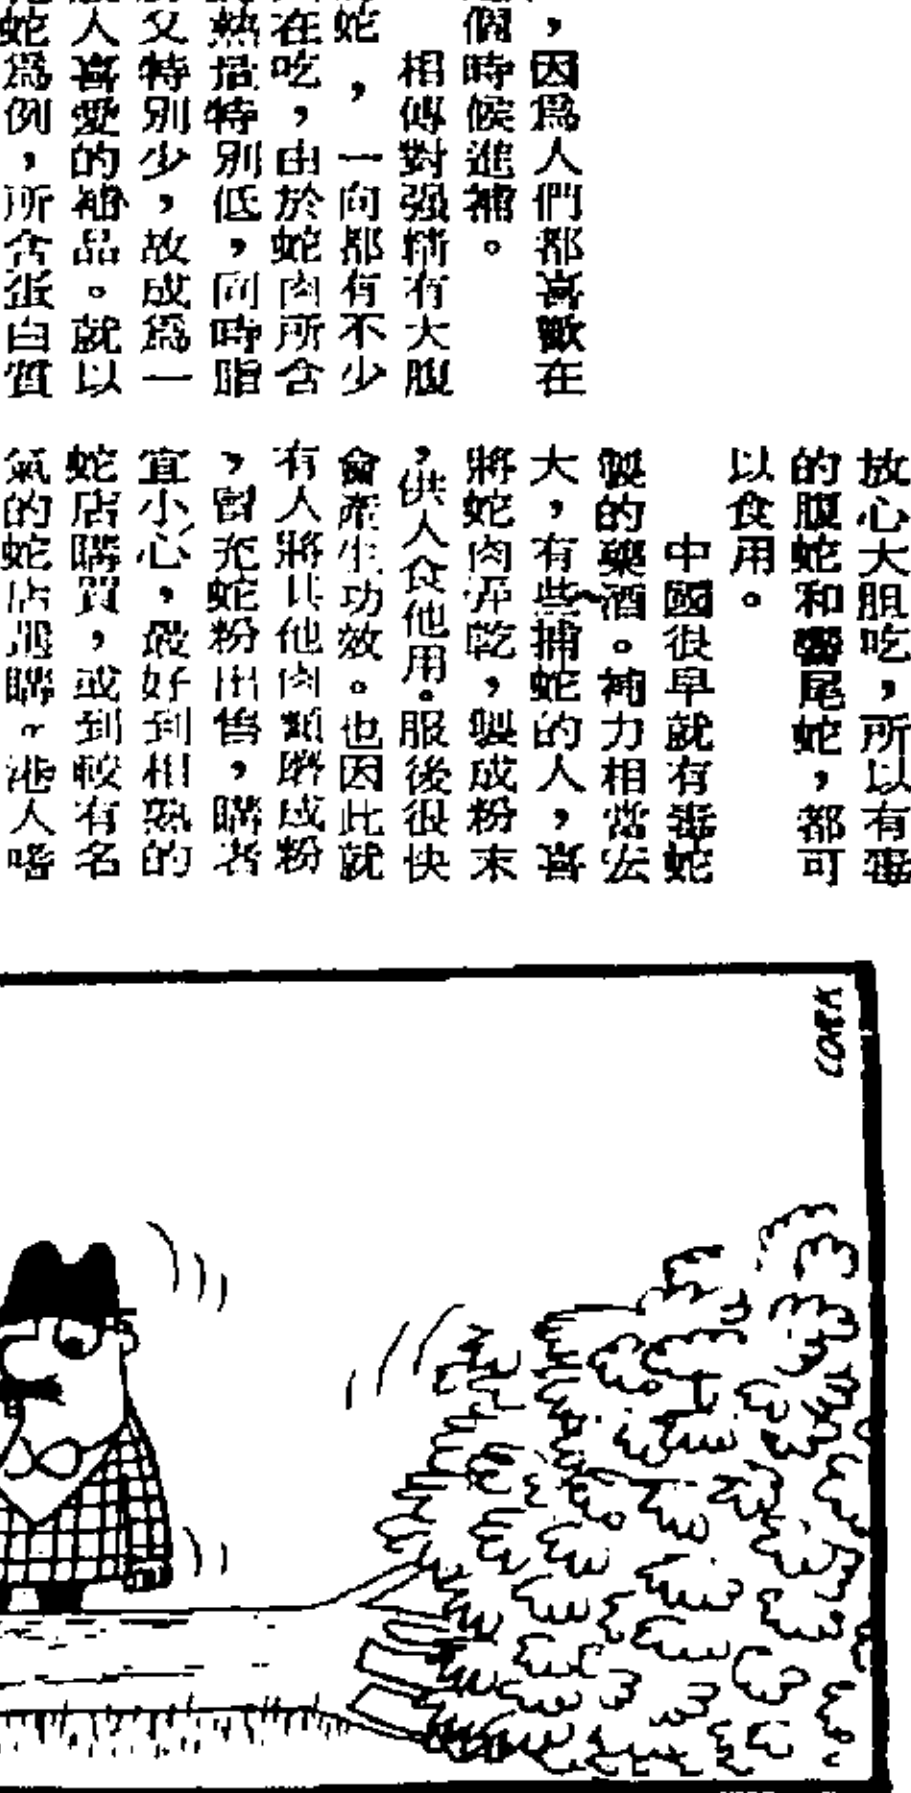 ，因爲人們都喜歡在
個時候進補。
相傳對强精有大腹
蛇，一向都有不少
在吃，由於蛇肉所含
熱量特別低，同時脂
又特別少，故成爲一
人喜愛的補品。就以
蛇爲例，所含蛋白質
放心大胆吃，所以有毒
的腹蛇和響尾蛇，都可
以食用。
中國很早就有毒蛇
製的藥酒。補力相當宏
大，有些捕蛇的人，喜
將蛇肉弄乾，製成粉末
，供人食他用。服後很快
會產生功效。也因此就
有人將其他肉類磨成粉
，冒充蛇粉出售，購者
宜小心，最好到相熟的
蛇店購買，或到較有名
氣的蛇店選購。港人嗜
CORK